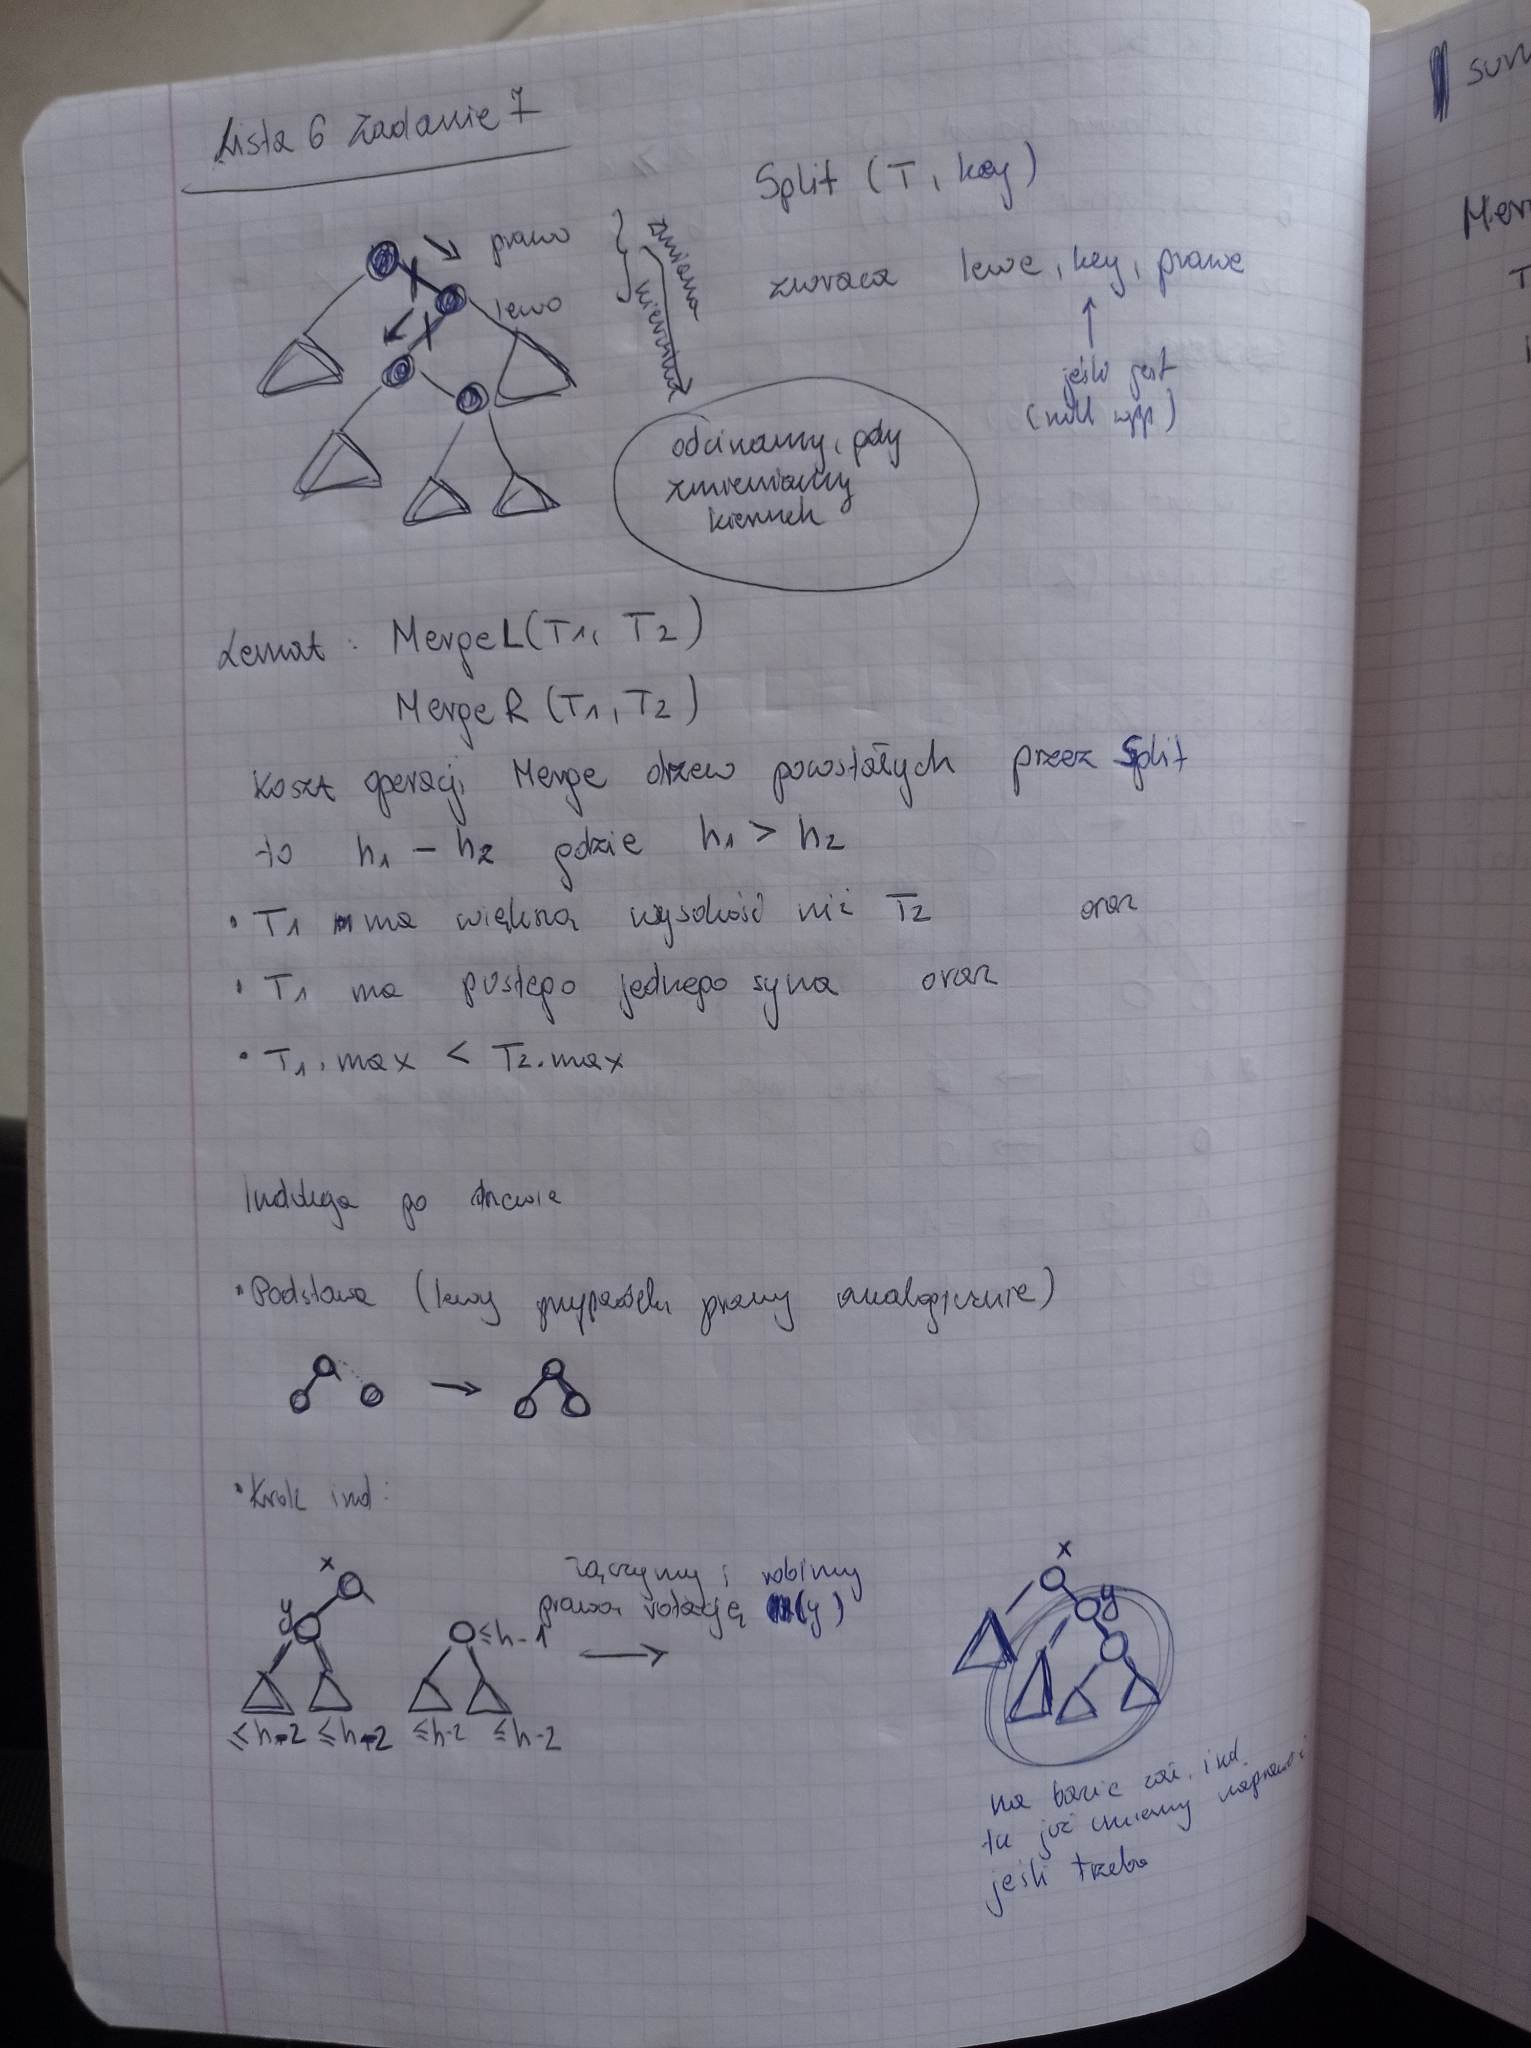 Lista 6 Zadanie 7
Split (T, key)
prawo
lewo
zmiana
kierunku
zwraca lewe, key, prawe
jeśli jest
(null wpp)
odcinamy, gdy
zmieniamy
kierunek
Lemat: MergeL(T1, T2)
MergeR (T1, T2)
Koszt operacji Merge drzew powstałych przez Split
to h1 - h2 gdzie h1 > h2
• T1 ma większą wysokość niż T2 oraz
• T1 ma pustego jednego syna oraz
• T1.max < T2.max
Indukcja po drzewie
• Podstawa (lewy przypadek, prawy analogicznie)
• Krok ind:
x
y
≤h-1
≤h-2 ≤h-2 ≤h-2 ≤h-2
Łączymy i robimy
prawą rotację (y)
x
y
na bazie zał. ind.
tu już umiemy naprawić
jeśli trzeba
Mer